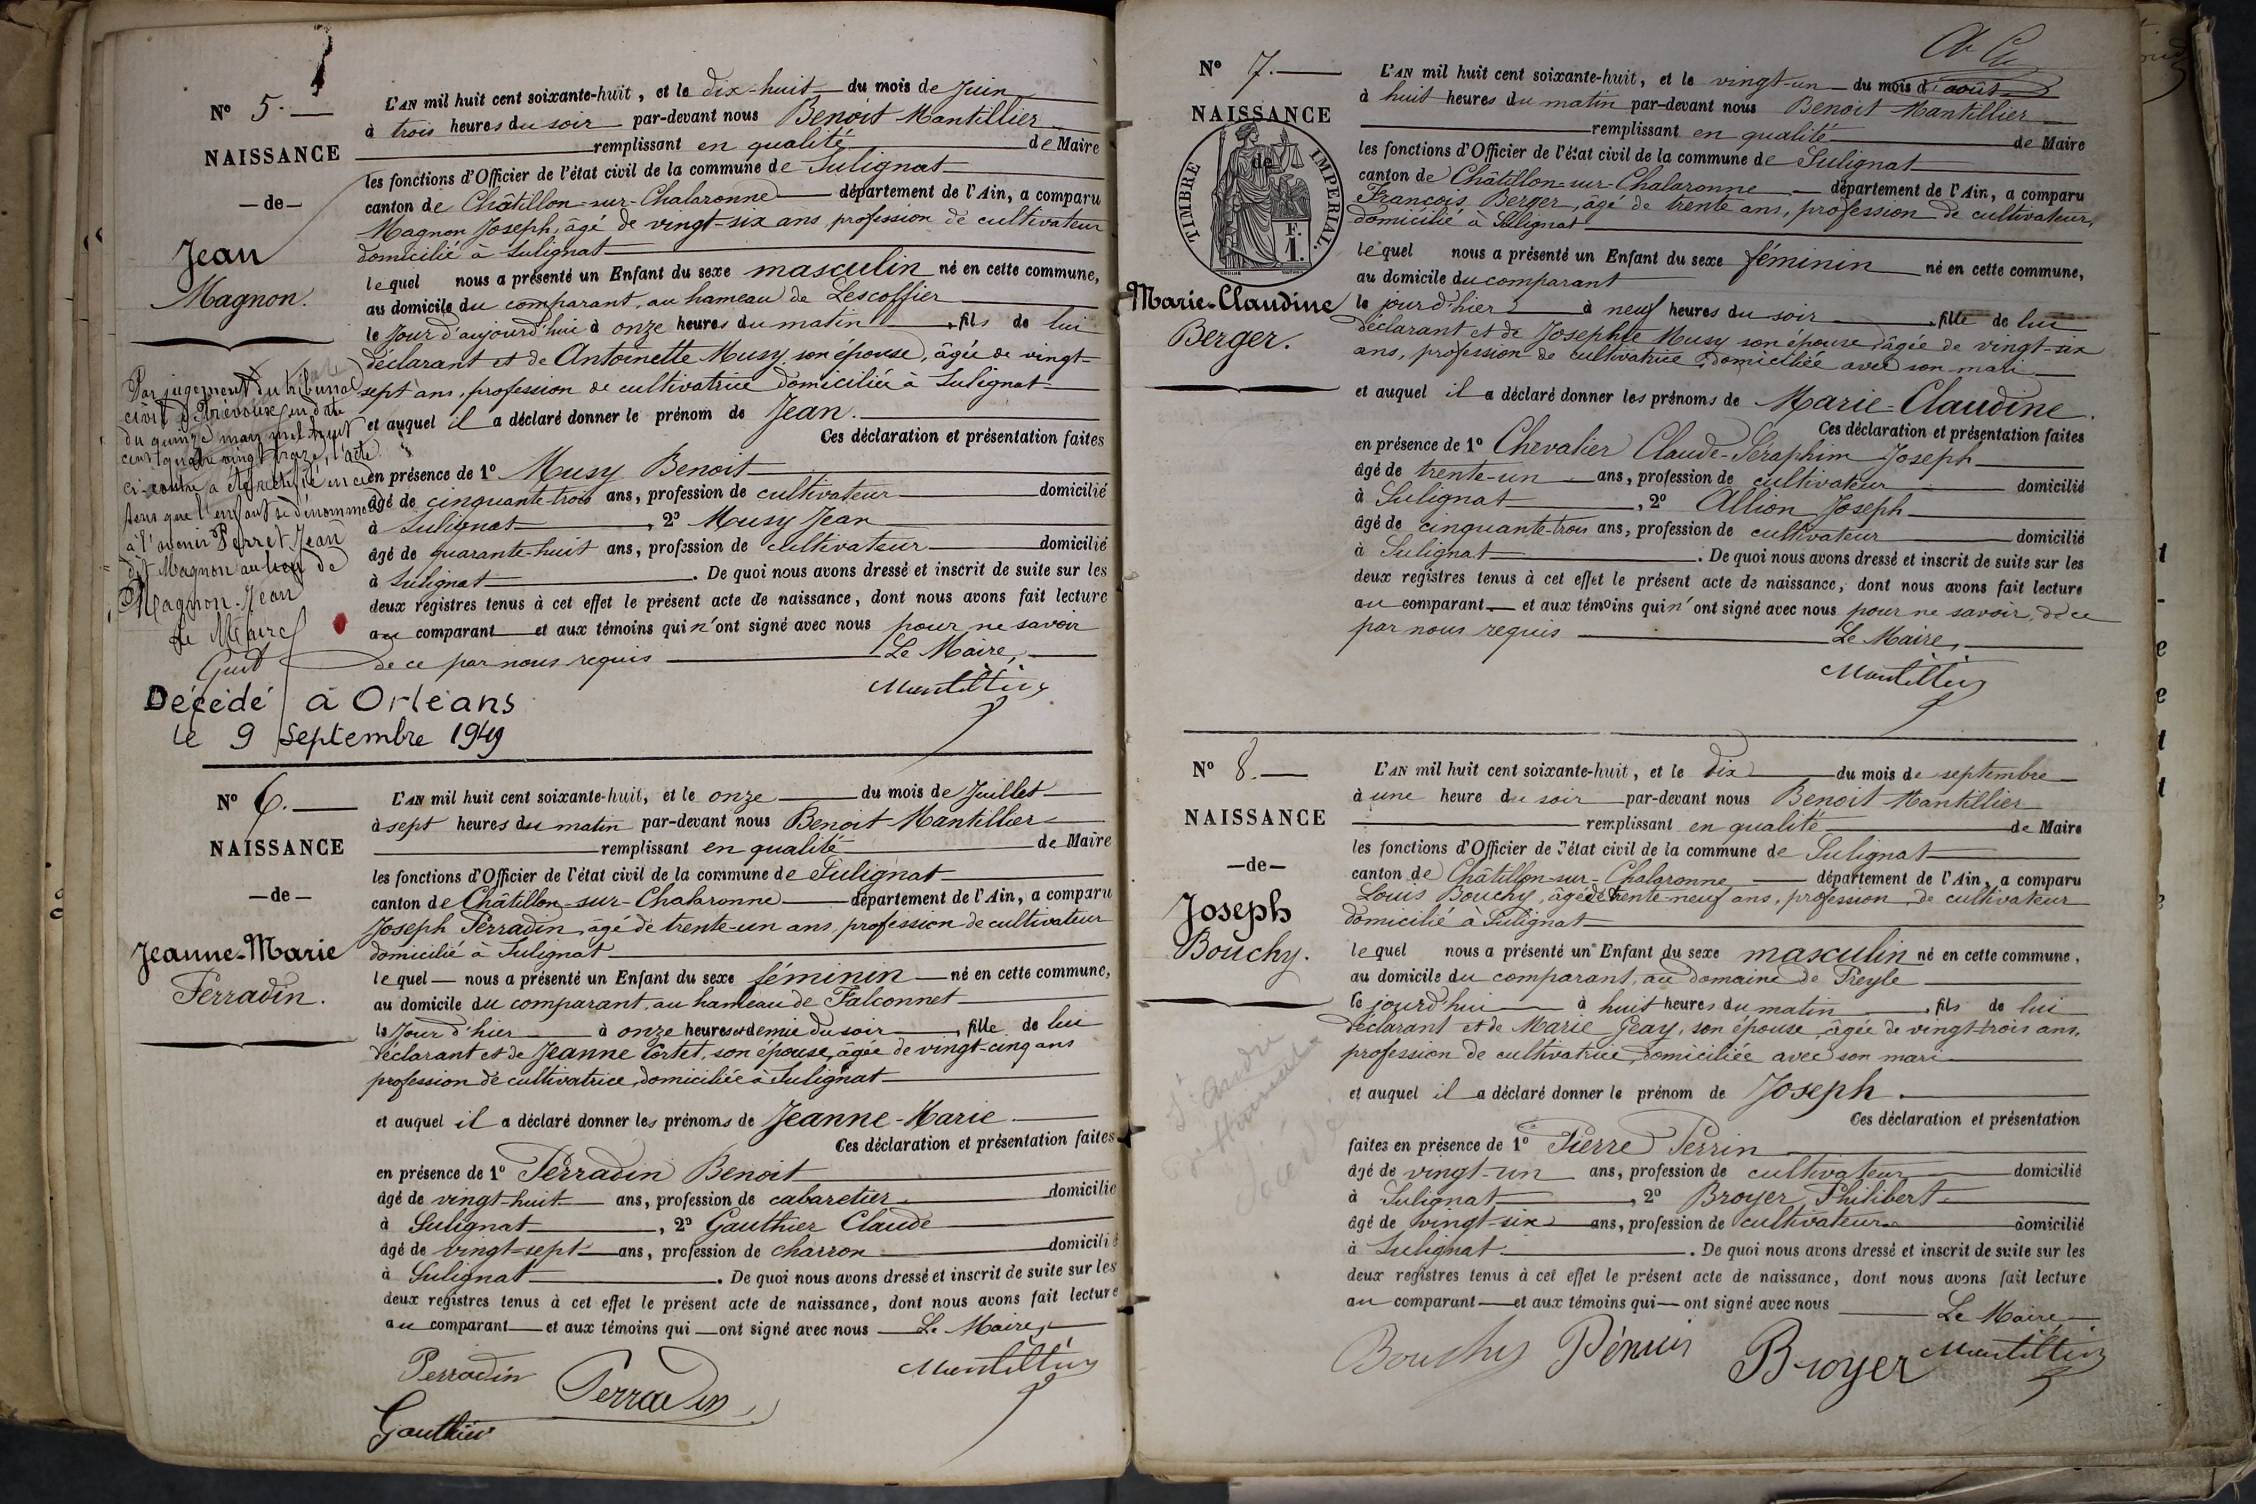 N° 5.
NAISSANCE
— de —
Jean
Magnon.
L'AN mil huit cent soixante-huit, et le dix-huit du mois de Juin
à trois heures du soir par-devant nous Benoit Mantillier
remplissant en qualité de Maire
les fonctions d'Officier de l'état civil de la commune de Sulignat
canton de Châtillon-sur-Chalaronne département de l'Ain, a comparu
Magnon Joseph, âgé de vingt-six ans, profession de cultivateur
domicilié à Sulignat
lequel nous a présenté un Enfant du sexe masculin né en cette commune,
au domicile du comparant, au hameau de Lescoffier
le jour d'aujourd'hui à onze heures du matin, fils de lui
déclarant et de Antoinette Musy, son épouse, âgée de vingt-
sept ans, profession de cultivatrice domiciliée à Sulignat
et auquel il a déclaré donner le prénom de Jean.
Ces déclaration et présentation faites
en présence de 1° Musy Benoit
âgé de cinquante-trois ans, profession de cultivateur domicilié
à Sulignat, 2° Musy Jean
âgé de quarante-huit ans, profession de cultivateur domicilié
à Sulignat. De quoi nous avons dressé et inscrit de suite sur les
deux registres tenus à cet effet le présent acte de naissance, dont nous avons fait lecture
au comparant et aux témoins qui n'ont signé avec nous pour ne savoir
de ce par nous requis Le Maire,
Mantillier
Par jugement du tribunal
civil de Trévoux, en date
du quinze mars mil huit
cent quatre vingt treize, l'acte
ci-contre a été rectifié en ce
sens que l'enfant se dénommera
à l'avenir Perret Jean
dit Magnon au lieu de
Magnon Jean
Le Maire
Décédé à Orléans
le 9 septembre 1949
N° 6.
NAISSANCE
— de —
Jeanne-Marie
Perradin.
L'AN mil huit cent soixante-huit, et le onze du mois de Juillet
à sept heures du matin par-devant nous Benoit Mantillier
remplissant en qualité de Maire
les fonctions d'Officier de l'état civil de la commune de Sulignat
canton de Châtillon-sur-Chalaronne département de l'Ain, a comparu
Joseph Perradin, âgé de trente-un ans, profession de cultivateur
domicilié à Sulignat
lequel nous a présenté un Enfant du sexe féminin né en cette commune,
au domicile du comparant, au hameau de Falconnet
le jour d'hier à onze heures et demie du soir, fille de lui
déclarant et de Jeanne Cortet, son épouse, âgée de vingt-cinq ans
profession de cultivatrice, domiciliée à Sulignat
et auquel il a déclaré donner les prénoms de Jeanne-Marie
Ces déclaration et présentation faites
en présence de 1° Perradin Benoit
âgé de vingt-huit ans, profession de cabaretier domicilié
à Sulignat, 2° Gauthier Claude
âgé de vingt-sept ans, profession de charron domicilié
à Sulignat. De quoi nous avons dressé et inscrit de suite sur les
deux registres tenus à cet effet le présent acte de naissance, dont nous avons fait lecture
au comparant et aux témoins qui ont signé avec nous Le Maire,
Perradin Perradin Mantillier
Gauthier
N° 7.
NAISSANCE
de
TIMBRE IMPERIAL
F. 1.
Marie-Claudine
Berger.
L'AN mil huit cent soixante-huit, et le vingt-un du mois d'août
à huit heures du matin par-devant nous Benoit Mantillier
remplissant en qualité de Maire
les fonctions d'Officier de l'état civil de la commune de Sulignat
canton de Châtillon-sur-Chalaronne département de l'Ain, a comparu
François Berger, âgé de trente ans, profession de cultivateur,
domicilié à Sulignat
lequel nous a présenté un Enfant du sexe féminin né en cette commune,
au domicile du comparant
le jourd'hier à neuf heures du soir, fille de lui
déclarant et de Josephte Musy son épouse, âgée de vingt-six
ans, profession de cultivatrice domiciliée avec son mari
et auquel il a déclaré donner les prénoms de Marie-Claudine.
Ces déclaration et présentation faites
en présence de 1° Chevalier Claude-Séraphim Joseph
âgé de trente-un ans, profession de cultivateur domicilié
à Sulignat, 2° Allion Joseph
âgé de cinquante-trois ans, profession de cultivateur domicilié
à Sulignat. De quoi nous avons dressé et inscrit de suite sur les
deux registres tenus à cet effet le présent acte de naissance, dont nous avons fait lecture
au comparant et aux témoins qui n'ont signé avec nous pour ne savoir, de ce
par nous requis Le Maire,
Mantillier
N° 8.
NAISSANCE
— de —
Joseph
Bouchy.
L'AN mil huit cent soixante-huit, et le dix du mois de septembre
à une heure du soir par-devant nous Benoit Mantillier
remplissant en qualité de Maire
les fonctions d'Officier de l'état civil de la commune de Sulignat
canton de Châtillon-sur-Chalaronne département de l'Ain, a comparu
Louis Bouchy, âgé de trente-neuf ans, profession de cultivateur
domicilié à Sulignat
lequel nous a présenté un Enfant du sexe masculin né en cette commune,
au domicile du comparant, au domaine de Preyle
le jourd'hui à huit heures du matin, fils de lui
déclarant et de Marie Geay, son épouse, âgée de vingt-trois ans,
profession de cultivatrice, domiciliée avec son mari
et auquel il a déclaré donner le prénom de Joseph.
Ces déclaration et présentation
faites en présence de 1° Pierre Perrin
âgé de vingt-un ans, profession de cultivateur domicilié
à Sulignat, 2° Broyer Philibert
âgé de vingt-six ans, profession de cultivateur domicilié
à Sulignat. De quoi nous avons dressé et inscrit de suite sur les
deux registres tenus à cet effet le présent acte de naissance, dont nous avons fait lecture
au comparant et aux témoins qui ont signé avec nous Le Maire,
Bouchy Broyer Mantillier